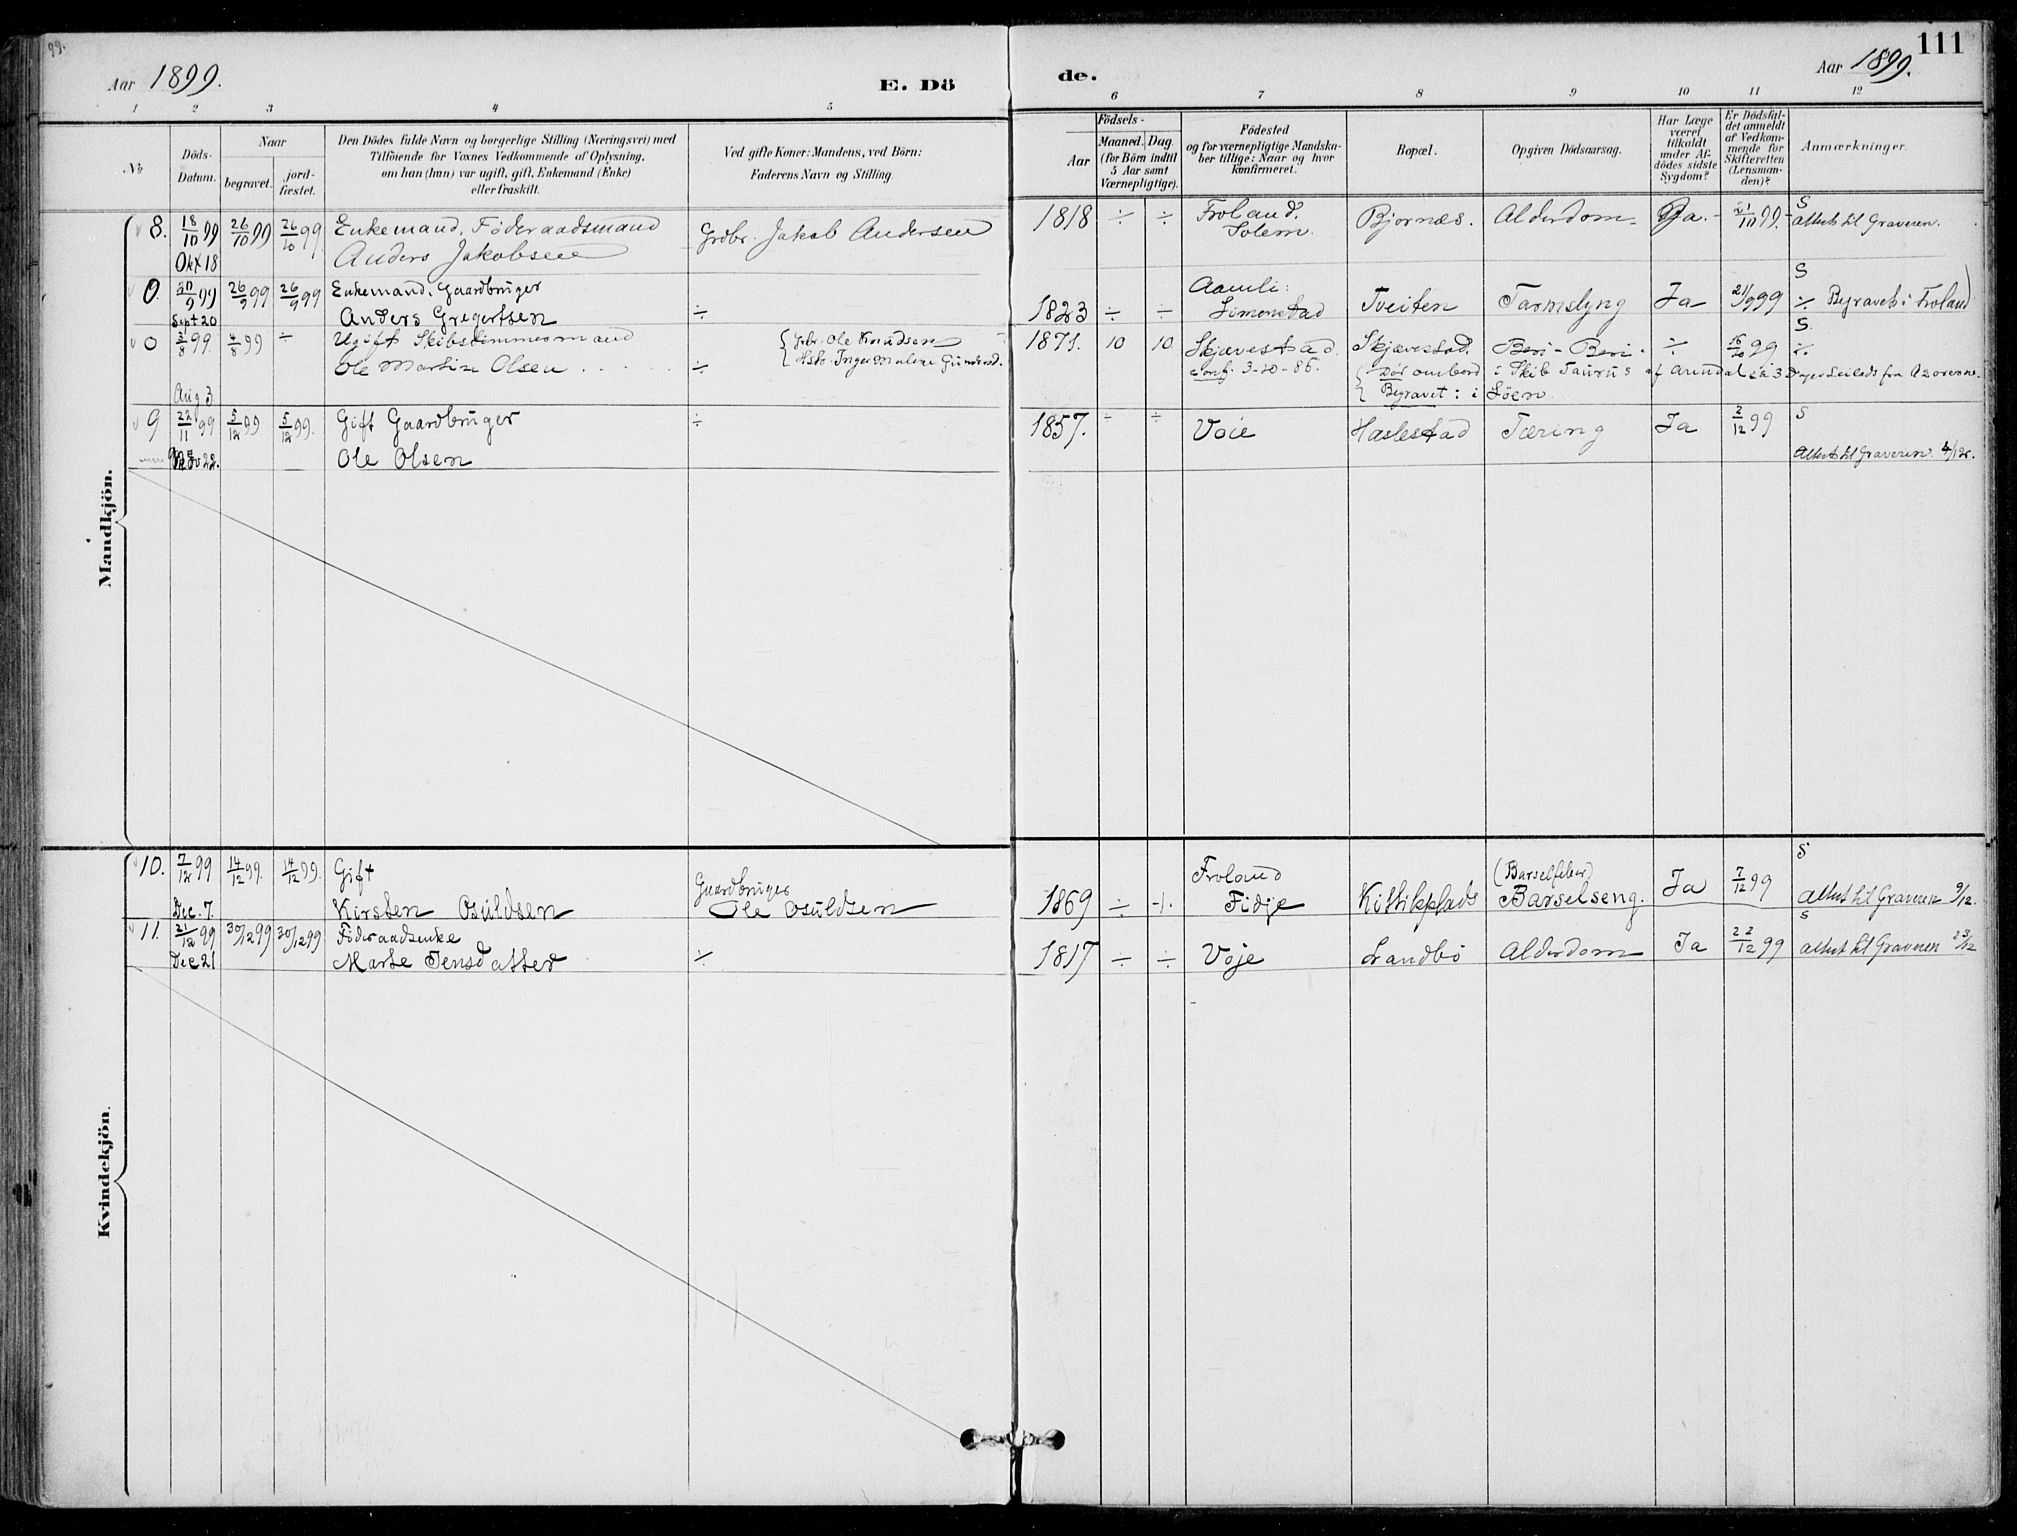 99.
Aar 1899.
E. Dö
de.
Aar 1899.
111
1 2 3 4 5 6 7 8 9 10 11 12
No
Döds-
Datum.
Naar
begravet.
jord-
fæstet.
Den Dödes fulde Navn og borgerlige Stilling (Næringsvei) med
Tilföiende for Voxnes Vedkommende af Oplysning,
om han (hun) var ugift, gift, Enkemand (Enke)
eller fraskilt.
Ved gifte Koner: Mandens, ved Börn:
Faderens Navn og Stilling.
Födsels-
Aar
Maaned.
Dag.
(for Börn indtil
5 Aar samt
Værnepligtige).
Födested
og for værnepligtige Mandska-
ber tillige: Naar og hvor
konfirmeret.
Bopæl.
Opgiven Dödsaarsag.
Har Læge
været
tilkaldt
under Af-
dödes sidste
Sygdom?
Er Dödsfal-
det anmeldt
af Vedkom-
mende for
Skifteretten
(Lensman-
den)?
Anmærkninger.
Mandkjön.
8. 18/10 99 26/10 99 26/10 99 Enkemand, Föderaadsmand Grdbr. Jakob Andersen 1818 ÷ ÷ Froland. Bjornæs. Alderdom Ja. 21/10 99. S
Okt 18 Anders Jakobsen Solem. Attest til Graveren.
0. 20/9 99 26/9 99 26/9 99 Enkemand, Gaardbruger ÷ 1823 ÷ ÷ Aamli: Tveiten Tarmslyng Ja 21/9 99 S
Sept 20 Anders Gregertsen Simonstad ÷ Begravet i Froland
0 3/8 99. 4/8 99 ÷ Ugift Skibstømmermand Gbr. Ole Knudsen 1871. 10 10 Skjævestad. Skjævestad. Beri-Beri. ÷ 16/10 99 S.
Ole Martin Olsen ÷ Hstr. Inger Malene Gundersd. conf. 3-10-86. Död ombord i Skib Taurus af Arendal ca 3 Dages Seilads fra Azorerne.
Aug 3 Begravet: i Söen
9 22/11 99 5/12 99 5/12 99. Gift Gaardbruger ÷ 1857. ÷ ÷ Vöie Haslestad Tæring Ja 2/12 99 S
Nov 22. Ole Olsen Attest til Graveren 4/12.
Kvindekjön.
10. 7/12 99 14/12 99. 14/12 99. Gift Gaardbruger 1869 ÷ ÷ Froland Kittilsplads (Barselfeber) Ja 7/12 99 S
Dec. 7. Kirsten Osuldsen Ole Osuldsen Fidje Barselseng. Attest til Graveren 9/12.
11. 21/12 99 30/12 99 30/12 99 Föderaadsenke ÷ 1817 ÷ ÷ Vöje Landbö Alderdom Ja 22/12 99 S
Dec 21 Marte Jensdatter Attest til Graveren 23/12